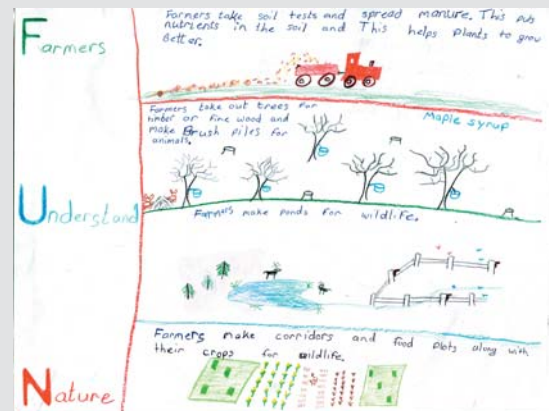 Farmers
Farmers take soil tests and spread manure. This puts
nutrients in the soil and This helps plants to grow
better.
Farmers take out trees for
timber or fine wood and
make Brush piles for
animals.
Maple syrup
Understand
Farmers make ponds for wildlife.
Farmers make corridors and food plots along with
their crops for wildlife.
Nature